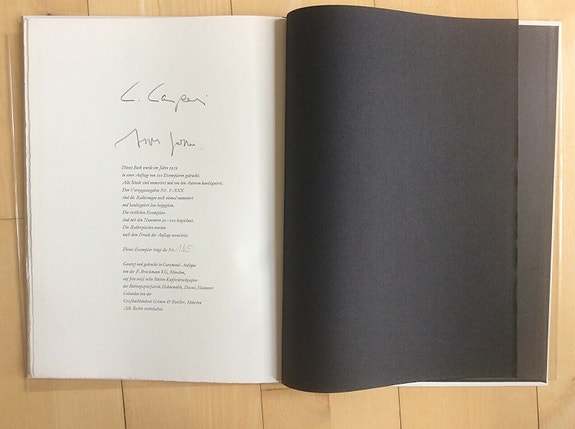 Dieses Buch wurde im Jahre 1979
in einer Auflage von 200 Exemplaren gedruckt.
Alle Bände sind numeriert und von den Autoren handsigniert.
Den Vorzugsausgaben Nr. I–XXX
sind die Radierungen noch einmal numeriert
und handsigniert lose beigegeben.
Die restlichen Exemplare
sind mit den Nummern 31–200 bezeichnet.
Die Radierplatten wurden
nach dem Druck der Auflage vernichtet.
Dieses Exemplar trägt die Nr.
Gesetzt und gedruckt in Garamond-Antiqua
von der F. Bruckmann KG, München,
auf Bütten-Kupferdruckpapier
der Büttenpapierfabrik Hahnemühle, Dassel, Hannover
Gebunden von der
Großbuchbinderei Grimm & Bleicher, München
Alle Rechte vorbehalten